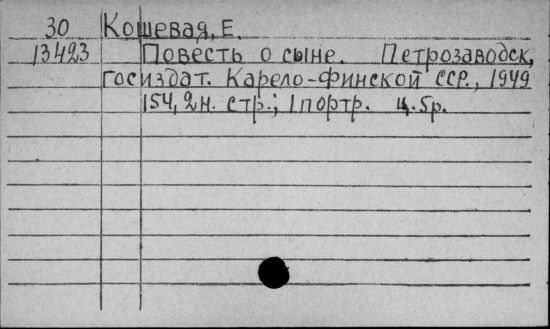 30 Кошевая, Е.
13423 Повесть о сыне. Петрозаводск,
Госиздат. Карело-Финской ССР., 1949
154, 2н. стр.; 1 портр. ц. 5р.